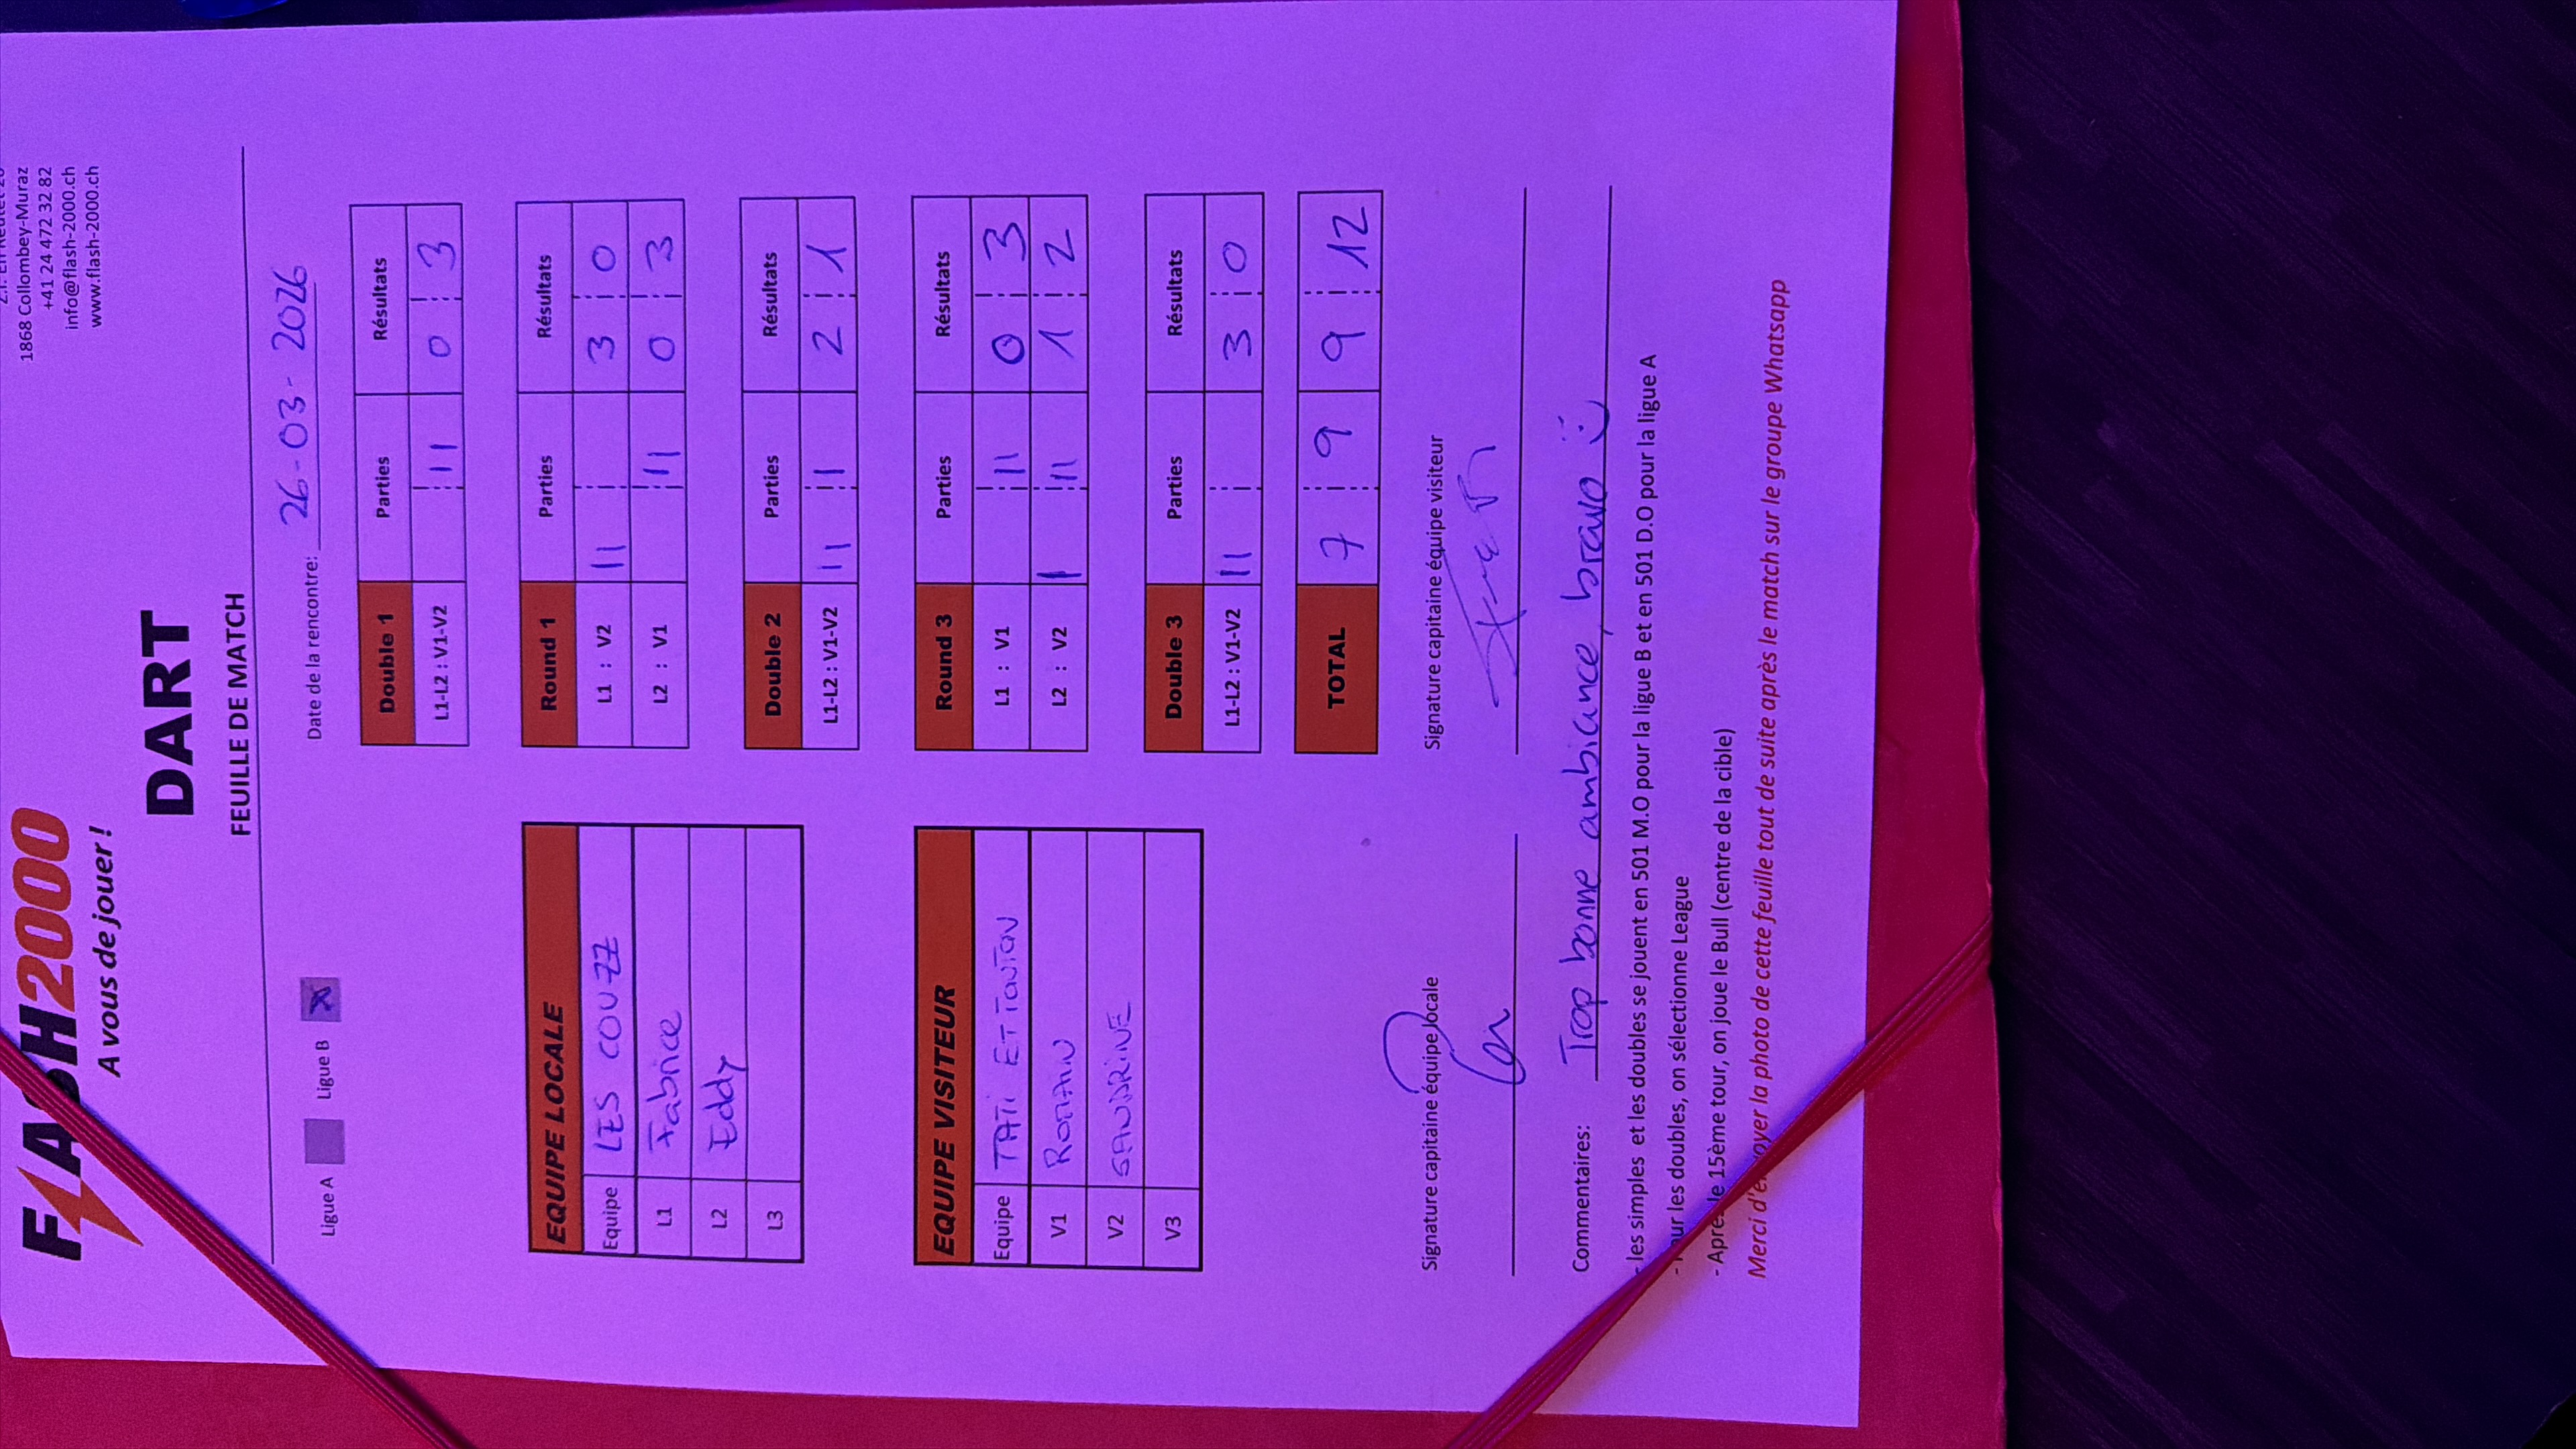 FLASH2000
A vous de jouer !
1868 Collombey-Muraz
+41 24 472 32 82
info@flash-2000.ch
www.flash-2000.ch
DART
FEUILLE DE MATCH
Ligue A Ligue B x Date de la rencontre: 26-03-2026
Double 1 Parties Résultats
L1-L2 : V1-V2 || 0 3
EQUIPE LOCALE
Equipe LES COUZZ
L1 Fabrice
L2 Eddy
L3
Round 1 Parties Résultats
L1 : V2 || 3 0
L2 : V1 || 0 3
Double 2 Parties Résultats
L1-L2 : V1-V2 || || 2 1
EQUIPE VISITEUR
Equipe TATI ET TONTON
V1 ROMAIN
V2 SANDRINE
V3
Round 3 Parties Résultats
L1 : V1 || 0 3
L2 : V2 | || 1 2
Double 3 Parties Résultats
L1-L2 : V1-V2 || 3 0
TOTAL 7 9 9 12
Signature capitaine équipe locale Signature capitaine équipe visiteur
Commentaires: Trop bonne ambiance, bravo :)
- les simples et les doubles se jouent en 501 M.O pour la ligue B et en 501 D.O pour la ligue A
- Pour les doubles, on sélectionne League
- Après le 15ème tour, on joue le Bull (centre de la cible)
Merci d'envoyer la photo de cette feuille tout de suite après le match sur le groupe Whatsapp